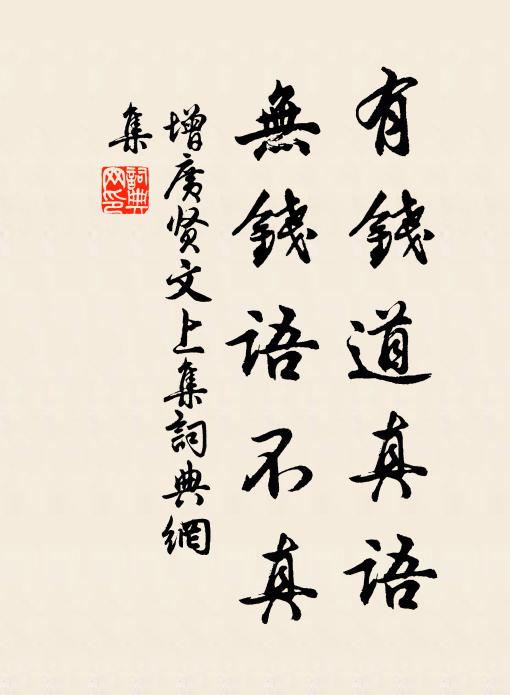 有錢道真語
無錢語不真
增廣贤文上集詞典網
集
詞典网印